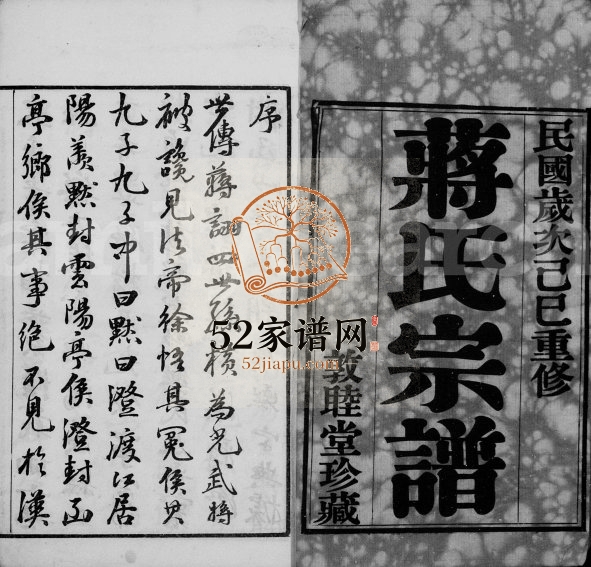 民國歲次己巳重修
蔣氏宗譜
敦睦堂珍藏
序
世傳蔣詡四世孫橫為光武將
被讒見法帝徐悟其冤侯其
九子九子中曰默曰澄渡江居
陽羨默封雲陽亭侯澄封凾
亭鄉侯其事絕不見於漢
52家谱网
52jiapu.com